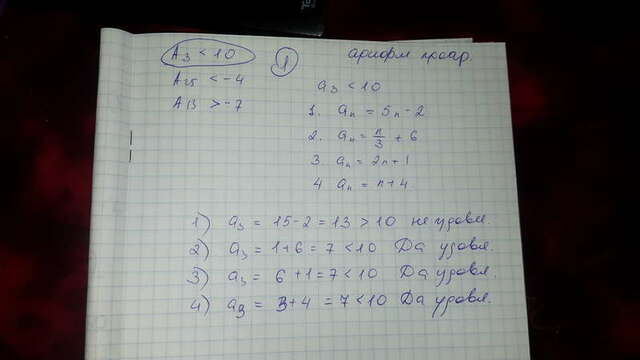 A₃ < 10
A₂₅ < -4
A₁₃ > -7
1
арифм прогр.
a₃ < 10
1. aₙ = 5n - 2
2. aₙ = n/3 + 6
3. aₙ = 2n + 1
4 aₙ = n + 4
1) a₃ = 15 - 2 = 13 > 10 не удовл.
2) a₃ = 1 + 6 = 7 < 10 Да удовл.
3) a₃ = 6 + 1 = 7 < 10 Да удовл.
4) a₃ = 3 + 4 = 7 < 10 Да удовл.